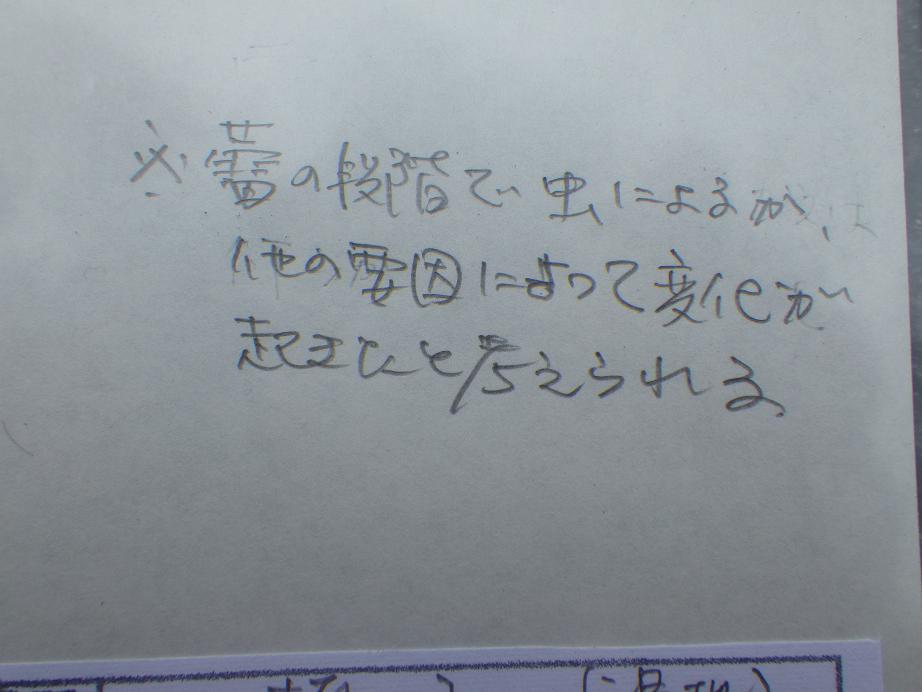 ※蕾の段階で虫によるか、
他の要因によって変化が
起きたと考えられる